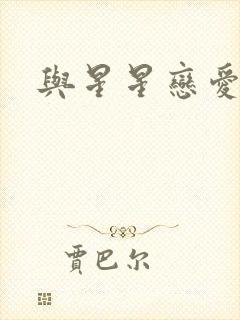 與星星戀愛
賈巴尔